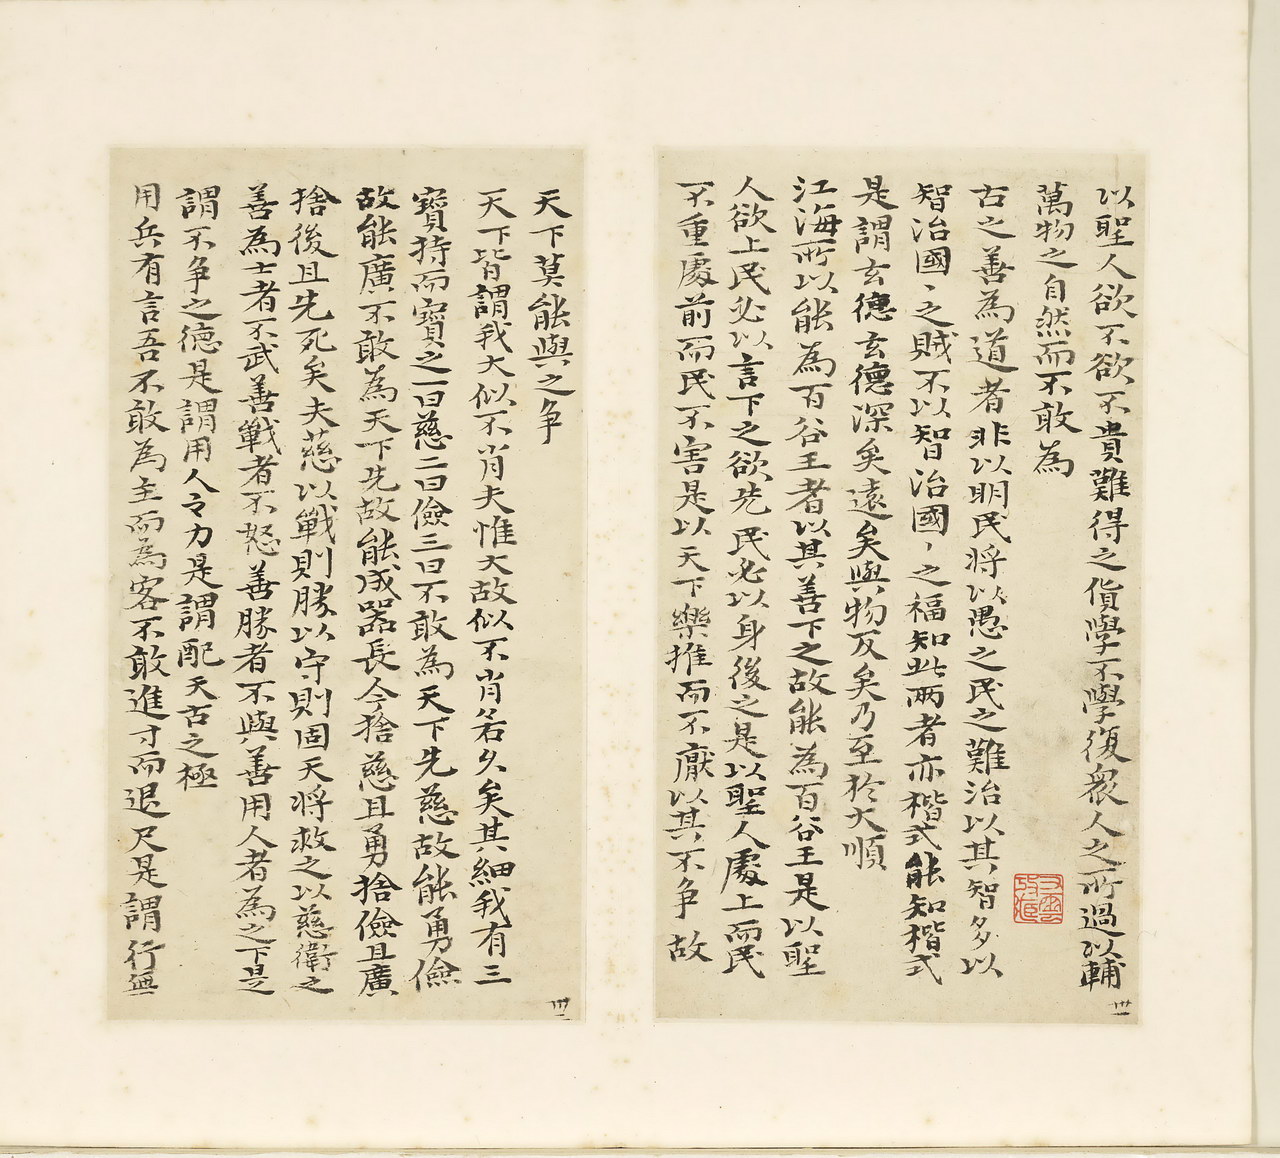 以聖人欲不欲不貴難得之貨學不學復衆人之所過以輔
萬物之自然而不敢為
古之善為道者非以明民將以愚之民之難治以其智多以
智治國〻之賊不以智治國〻之福知此兩者亦楷式能知楷式
是謂玄德玄德深矣遠矣與物反矣乃至於大順
江海所以能為百谷王者以其善下之故能為百谷王是以聖
人欲上民必以言下之欲先民必以身後之是以聖人處上而民
不重處前而民不害是以天下樂推而不厭以其不争故
卅一
天下莫能與之争
天下皆謂我大似不肖夫惟大故似不肖若久矣其細我有三
寶持而寶之一曰慈二曰儉三曰不敢為天下先慈故能勇儉
故能廣不敢為天下先故能成器長今捨慈且勇捨儉且廣
捨後且先死矣夫慈以戰則勝以守則固天將救之以慈衛之
善為士者不武善戰者不怒善勝者不與善用人者為之下是
謂不争之德是謂用人之力是謂配天古之極
用兵有言吾不敢為主而為客不敢進寸而退尺是謂行無